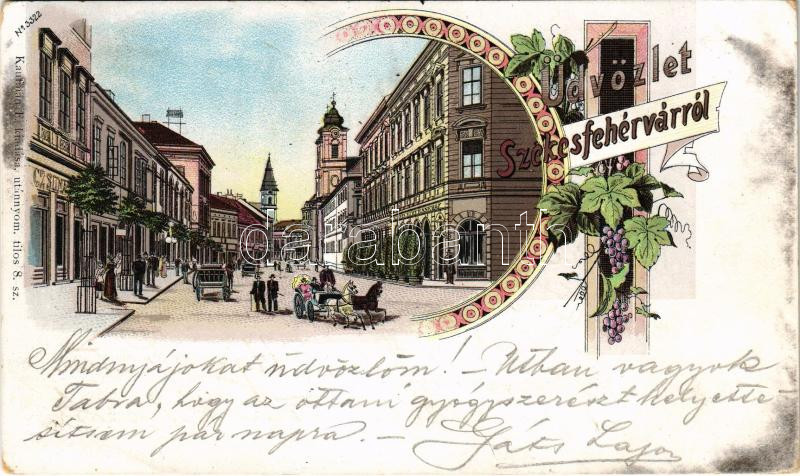 No 3322
Kaufman F. kiadása, utánnyom. tilos 8. sz.
Üdvözlet
Székesfehérvárról
darabanth
Mindnyájokat üdvözlöm! – Útban vagyok
Tabra, hogy az ottani gyógyszerészt helyette-
sítsem pár napra. – Gáts Lajos